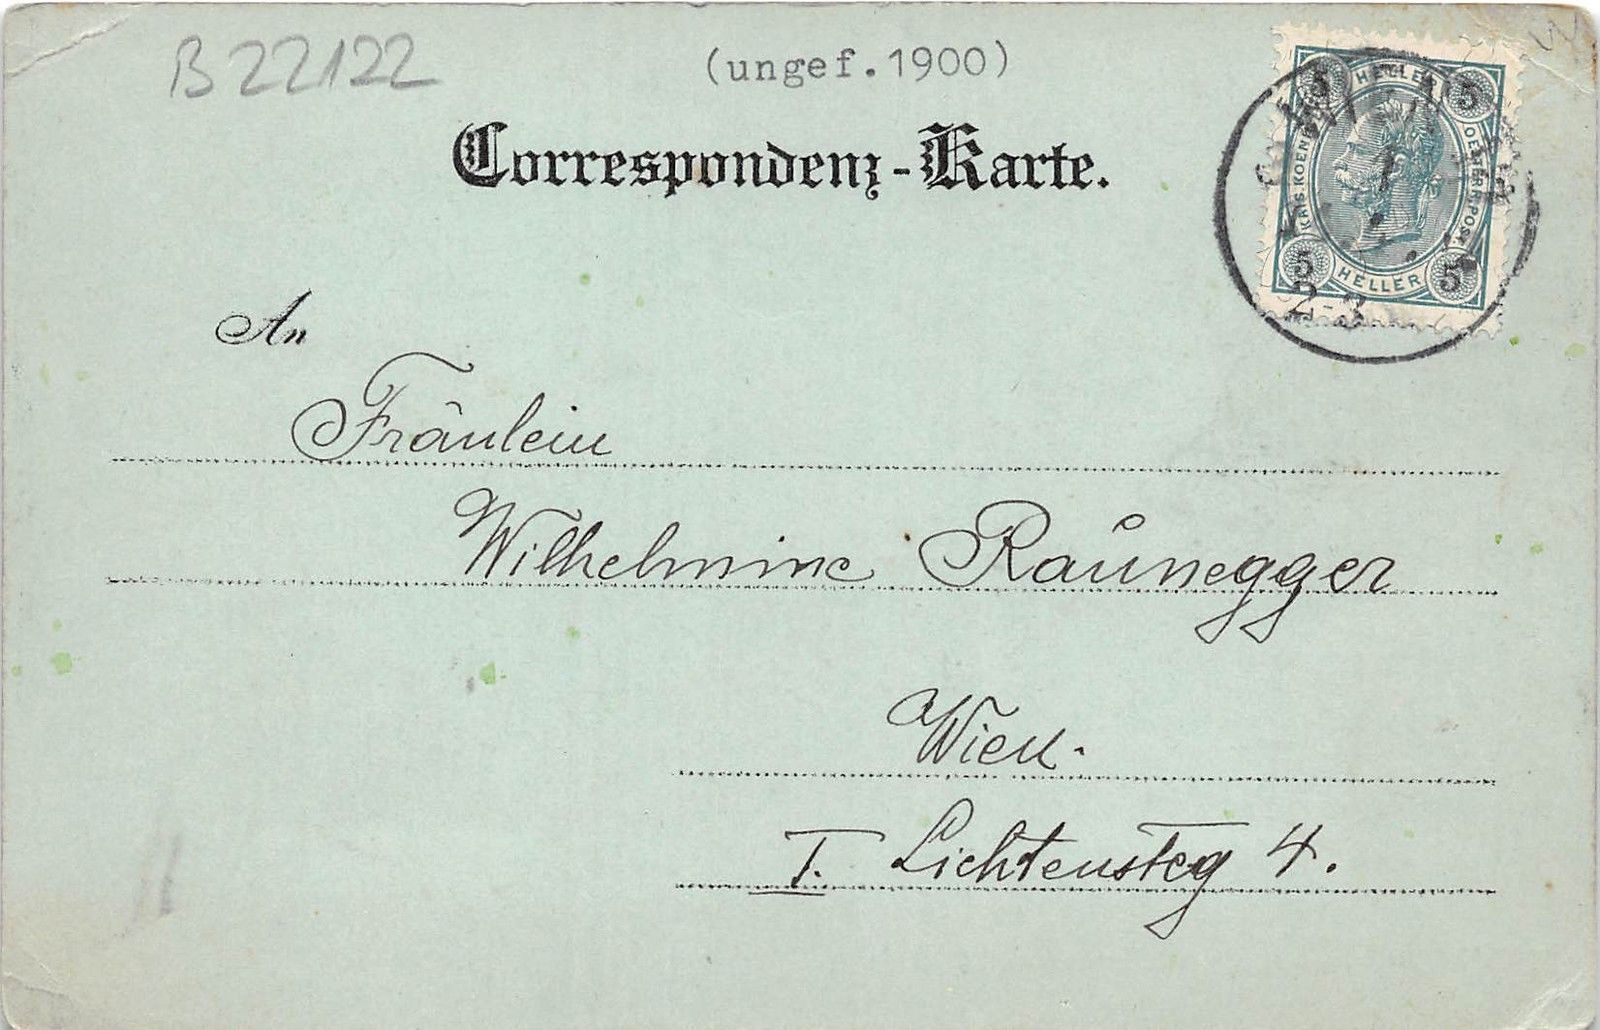 B 22122
(ungef.1900)
Correspondenz-Karte.
HELLER
5 5
KAIS. KOEN. OESTERR. POST.
5 5
HELLER
2-3
An
Fräulein
Wilhelmine Raunegger
Wien.
I. Lichtensteg 4.